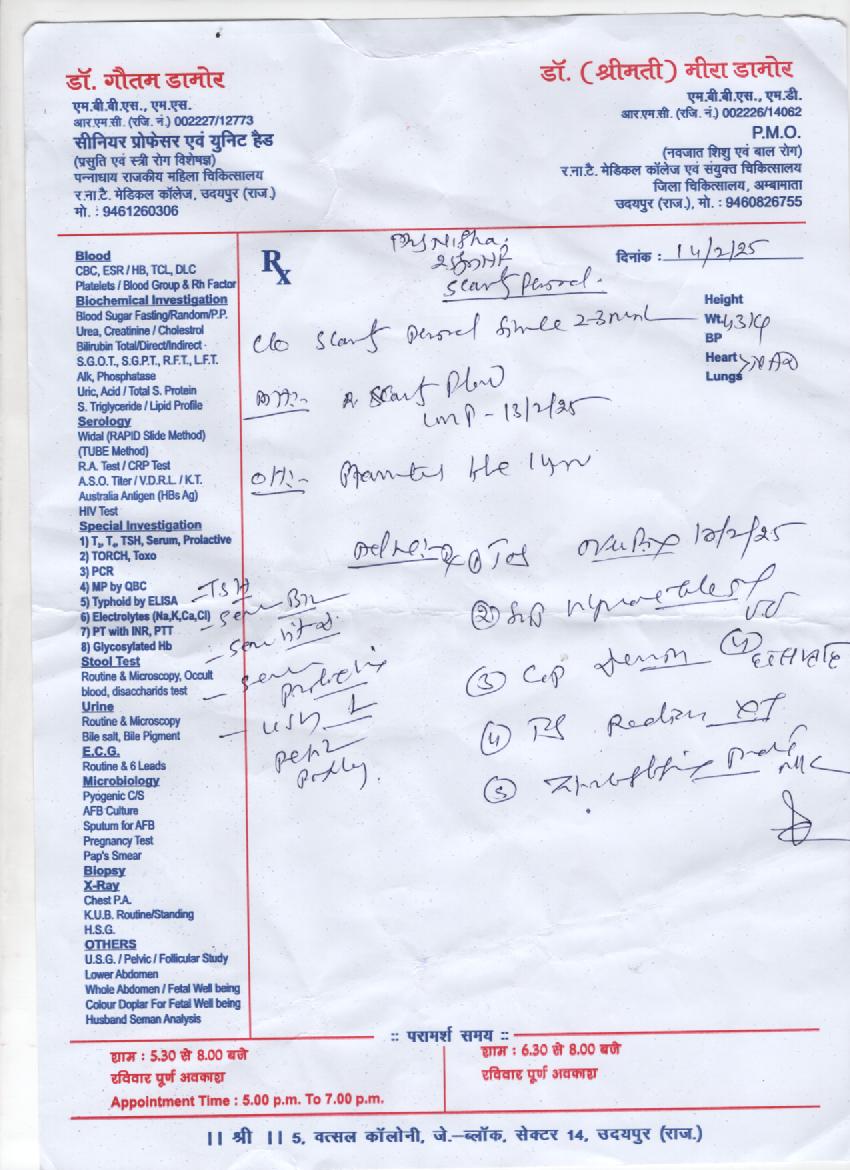 डॉ. गौतम डामोर
एम.बी.बी.एस., एम.एस.
आर.एम.सी. (रजि. नं.) 002227/12773
सीनियर प्रोफेसर एवं युनिट हैड
(प्रसुति एवं स्त्री रोग विशेषज्ञ)
पन्नाधाय राजकीय महिला चिकित्सालय
र.ना.टै. मेडिकल कॉलेज, उदयपुर (राज.)
मो. : 9461260306
डॉ. (श्रीमती) मीरा डामोर
एम.बी.बी.एस., एम.डी.
आर.एम.सी. (रजि. नं.) 002226/14062
P.M.O.
(नवजात शिशु एवं बाल रोग)
र.ना.टै. मेडिकल कॉलेज एवं संयुक्त चिकित्सालय
जिला चिकित्सालय, अम्बामाता
उदयपुर (राज.), मो. : 9460826755
Blood
CBC, ESR / HB, TCL, DLC
Platelets / Blood Group & Rh Factor
Biochemical Investigation
Blood Sugar Fasting/Random/P.P.
Urea, Creatinine / Cholestrol
Bilirubin Total/Direct/Indirect
S.G.O.T., S.G.P.T., R.F.T., L.F.T.
Alk, Phosphatase
Uric, Acid / Total S. Protein
S. Triglyceride / Lipid Profile
Serology
Widal (RAPID Slide Method)
(TUBE Method)
R.A. Test / CRP Test
A.S.O. Titer / V.D.R.L. / K.T.
Australia Antigen (HBs Ag)
HIV Test
Special Investigation
1) T₃, T₄, TSH, Serum, Prolactive
2) TORCH, Toxo
3) PCR
4) MP by QBC
5) Typhoid by ELISA
6) Electrolytes (Na,K,Ca,Cl)
7) PT with INR, PTT
8) Glycosylated Hb
Stool Test
Routine & Microscopy, Occult
blood, disaccharids test
Urine
Routine & Microscopy
Bile salt, Bile Pigment
E.C.G.
Routine & 6 Leads
Microbiology
Pyogenic C/S
AFB Culture
Sputum for AFB
Pregnancy Test
Pap's Smear
Biopsy
X-Ray
Chest P.A.
K.U.B. Routine/Standing
H.S.G.
OTHERS
U.S.G. / Pelvic / Follicular Study
Lower Abdomen
Whole Abdomen / Fetal Well being
Colour Doplar For Fetal Well being
Husband Seman Analysis
Rx
दिनांक : 14/2/25
Scanty Period
Height
Wt.
BP
Heart NAD
Lungs
c/o Scanty Period since 2-3
Scanty Flow
LMP - 13/2/25
O/H:-
- TSH
- Serum
- Serum
- Serum
Prolactin
①
②
③ Cap
④
⑤
:: परामर्श समय ::
शाम : 5.30 से 8.00 बजे
रविवार पूर्ण अवकाश
Appointment Time : 5.00 p.m. To 7.00 p.m.
शाम : 6.30 से 8.00 बजे
रविवार पूर्ण अवकाश
|| श्री || 5, वत्सल कॉलोनी, जे.-ब्लॉक, सेक्टर 14, उदयपुर (राज.)